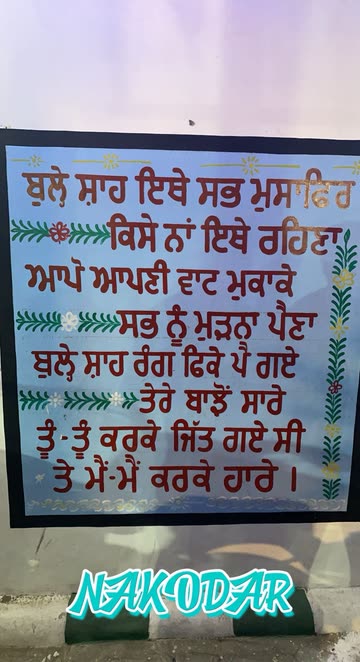 ਬੁਲ੍ਹੇ ਸ਼ਾਹ ਇਥੇ ਸਭ ਮੁਸਾਫਿਰ
ਕਿਸੇ ਨਾਂ ਇਥੇ ਰਹਿਣਾ
ਆਪੋ ਆਪਣੀ ਵਾਟ ਮੁਕਾਕੇ
ਸਭ ਨੂੰ ਮੁੜਨਾ ਪੈਣਾ
ਬੁਲ੍ਹੇ ਸ਼ਾਹ ਰੰਗ ਫਿਕੇ ਪੈ ਗਏ
ਤੇਰੇ ਬਾਝੋਂ ਸਾਰੇ
ਤੂੰ-ਤੂੰ ਕਰਕੇ ਜਿੱਤ ਗਏ ਸੀ
ਤੇ ਮੈਂ-ਮੈਂ ਕਰਕੇ ਹਾਰੇ ।
NAKODAR